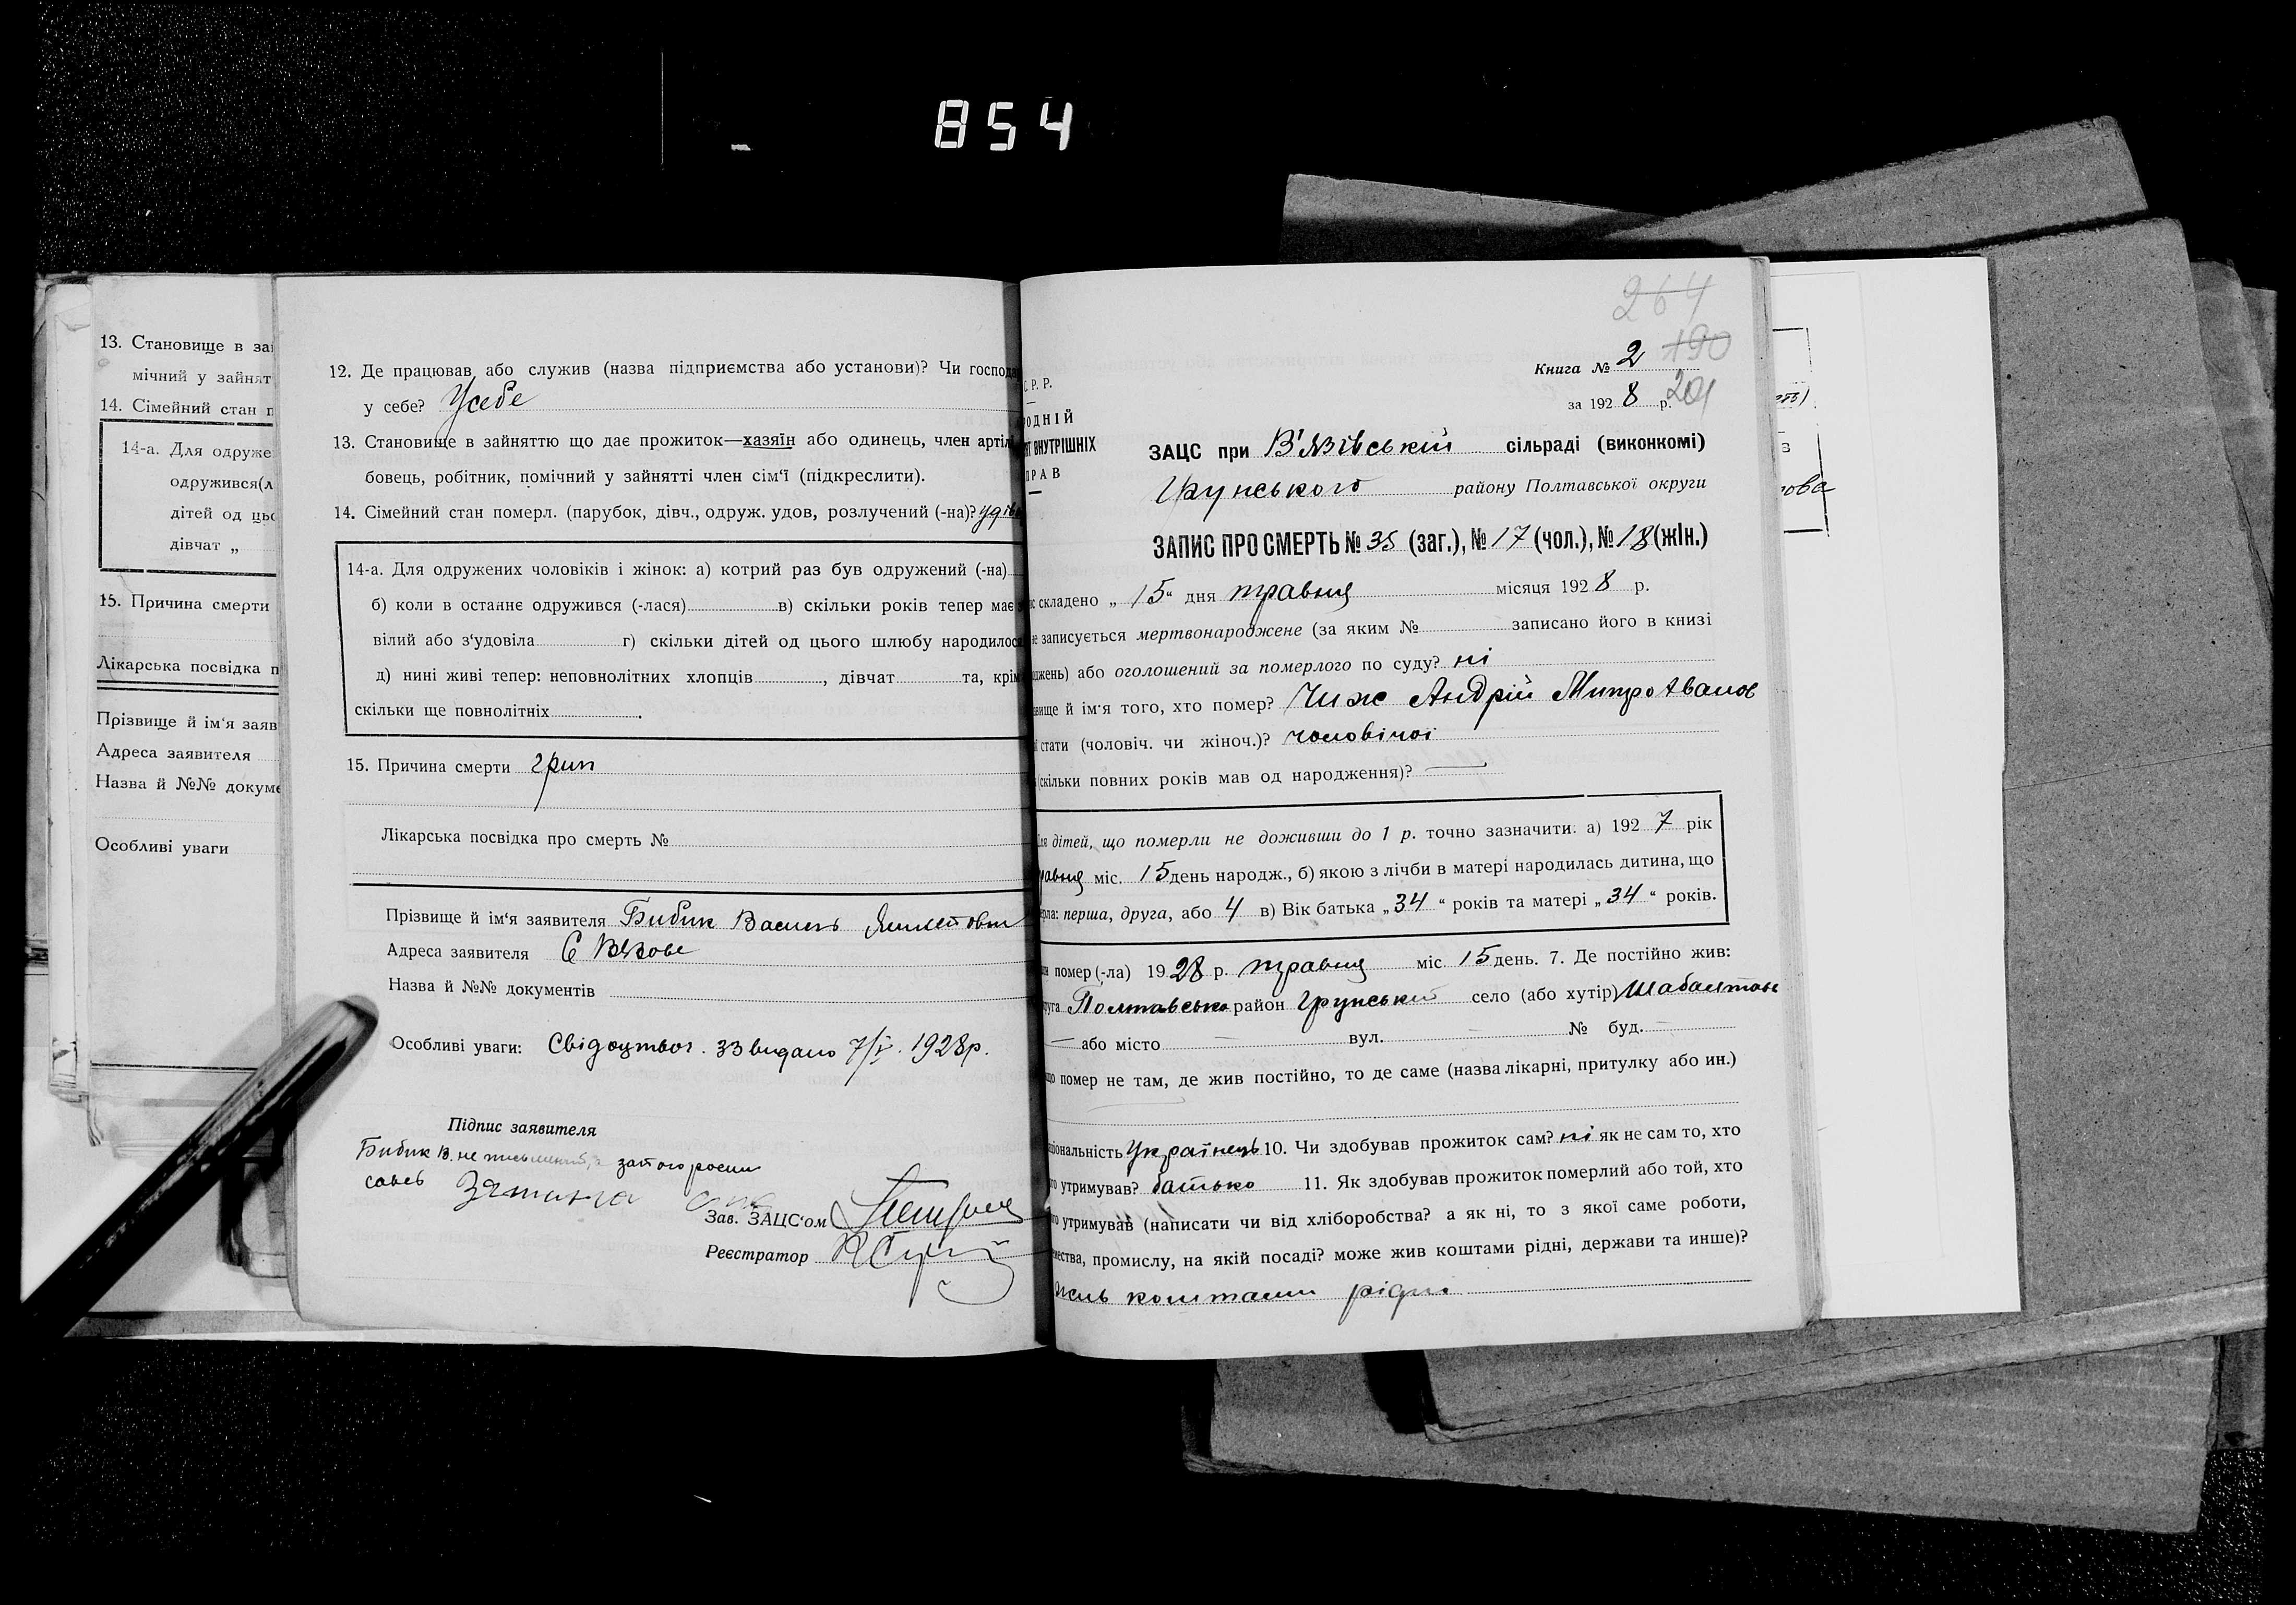 854
13. Становище в за
мічний у зайнят
14. Сімейний стан п
14-а. Для одруже
одружився(л
дітей од ць
дівчат „
15. Причина смерти
Лікарська посвідка п
Прізвище й ім'я заяв
Адреса заявителя
Назва й №№ докуме
Особливі уваги
12. Де працював або служив (назва підприємства або установи)? Чи господа
у себе? Усебе
13. Становище в зайняттю що дає прожиток—хазяїн або одинець, член артіл
бовець, робітник, помічний у зайнятті член сім'ї (підкреслити).
14. Сімейний стан померл. (парубок, дівч., одруж. удов, розлучений (-на)? удів
14-а. Для одружених чоловіків і жінок: а) котрий раз був одружений (-на)
б) коли в останнє одружився (-лася) в) скільки років тепер має
вілий або з'удовіла г) скільки дітей од цього шлюбу народилося
д) нині живі тепер: неповнолітних хлопців , дівчат та, крім
скільки ще повнолітніх .
15. Причина смерти грип
Лікарська посвідка про смерть №
Прізвище й ім'я заявителя Бибик Василь
Адреса заявителя С Вязове
Назва й №№ документів
Особливі уваги: Свідоцтво . 33 видано 7/V. 1928р.
Підпис заявителя
Бибик В. не письменний, а за його
Зав. ЗАЦС'ом
Реєстратор
264
190
Книга № 2
за 192 8 р. 201
С.Р.Р.
РОДНІЙ
ВНУТРІШНІХ
ПРАВ
ЗАЦС при В'язівській сільраді (виконкомі)
Грунського району Полтавської округи
ЗАПИС ПРО СМЕРТЬ № 35 (заг.), № 17 (чол.), № 18 (жін.)
складено „ 15 “ дня травня місяця 192 8 р.
записується мертвонароджене (за яким № записано його в книзі
джень) або оголошений за померлого по суду? ні
вище й ім'я того, хто помер? Чиж Андрій Митрофанов
стати (чоловіч. чи жіноч.)? чоловічої
(скільки повних років мав од народження)? —
дітей, що померли не доживши до 1 р. точно зазначити: а) 192 7 рік
равня міс. 15 день народж., б) якою з лічби в матері народилась дитина, що
рла: перша, друга, або 4 в) Вік батька „ 34 “ років та матері „ 34 “ років.
помер (-ла) 19 28 р. травня міс 15 день. 7. Де постійно жив:
руга Полтавська район Грунський село (або хутір)
— або місто — вул. — № буд. —
що помер не там, де жив постійно, то де саме (назва лікарні, притулку або ин.)
ціональність Українець 10. Чи здобував прожиток сам? ні як не сам то, хто
го утримував? батько 11. Як здобував прожиток померлий або той, хто
го утримував (написати чи від хліборобства? а як ні, то з якої саме роботи,
ества, промислу, на якій посаді? може жив коштами рідні, держави та инше)?
жив коштами рідні